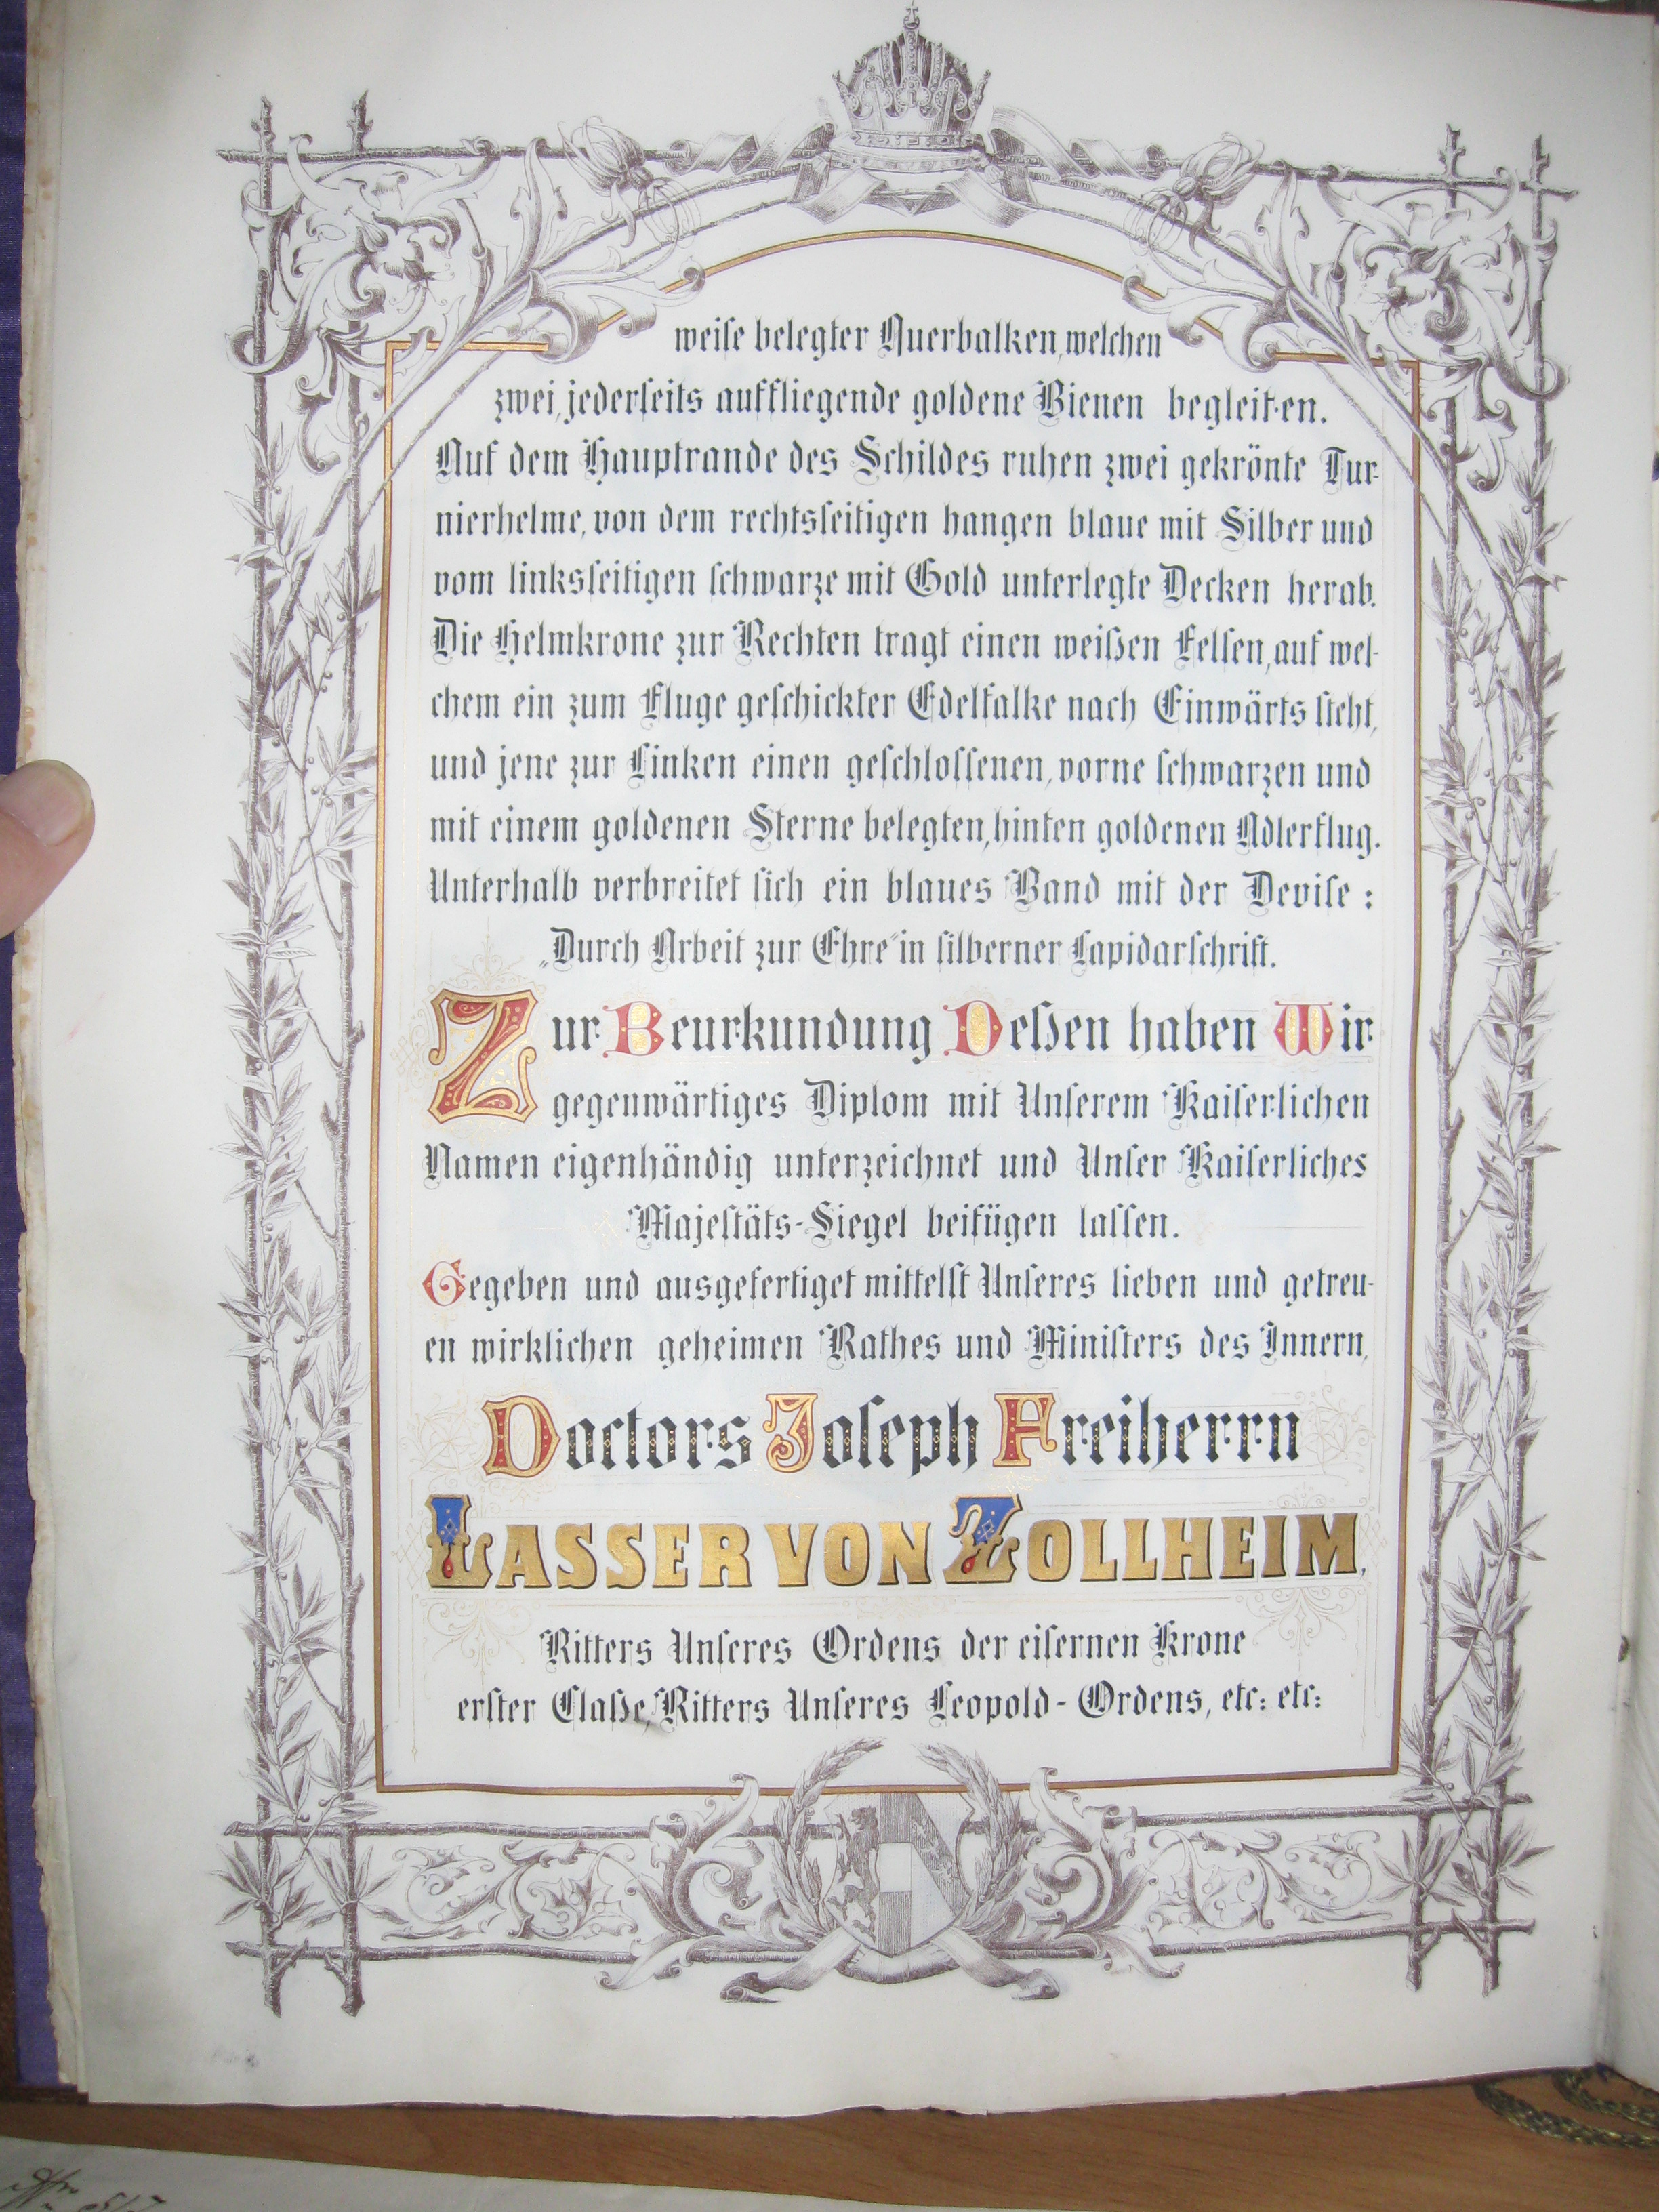 weise belegter Querbalken, welchen
zwei, jederseits auffliegende goldene Bienen begleiten.
Auf dem Hauptrande des Schildes ruhen zwei gekrönte Tur-
nierhelme, von dem rechtsseitigen hangen blaue mit Silber und
vom linksseitigen schwarze mit Gold unterlegte Decken herab.
Die Helmkrone zur Rechten tragt einen weißen Felsen, auf wel-
chem ein zum Fluge geschickter Edelfalke nach Einwärts steht,
und jene zur Linken einen geschlossenen, vorne schwarzen und
mit einem goldenen Sterne belegten, hinten goldenen Adlerflug.
Unterhalb verbreitet sich ein blaues Band mit der Devise:
„Durch Arbeit zur Ehre“ in silberner Lapidarschrift.
Zur Beurkundung Deßen haben Wir
gegenwärtiges Diplom mit Unserem Kaiserlichen
Namen eigenhändig unterzeichnet und Unser Kaiserliches
Majestäts-Siegel beifügen lassen.
Gegeben und ausgefertiget mittelst Unseres lieben und getreu-
en wirklichen geheimen Rathes und Ministers des Innern,
Doctors Joseph Freiherrn
LASSER VON ZOLLHEIM,
Ritters Unseres Ordens der eisernen Krone
erster Claße, Ritters Unseres Leopold-Ordens, etc: etc: